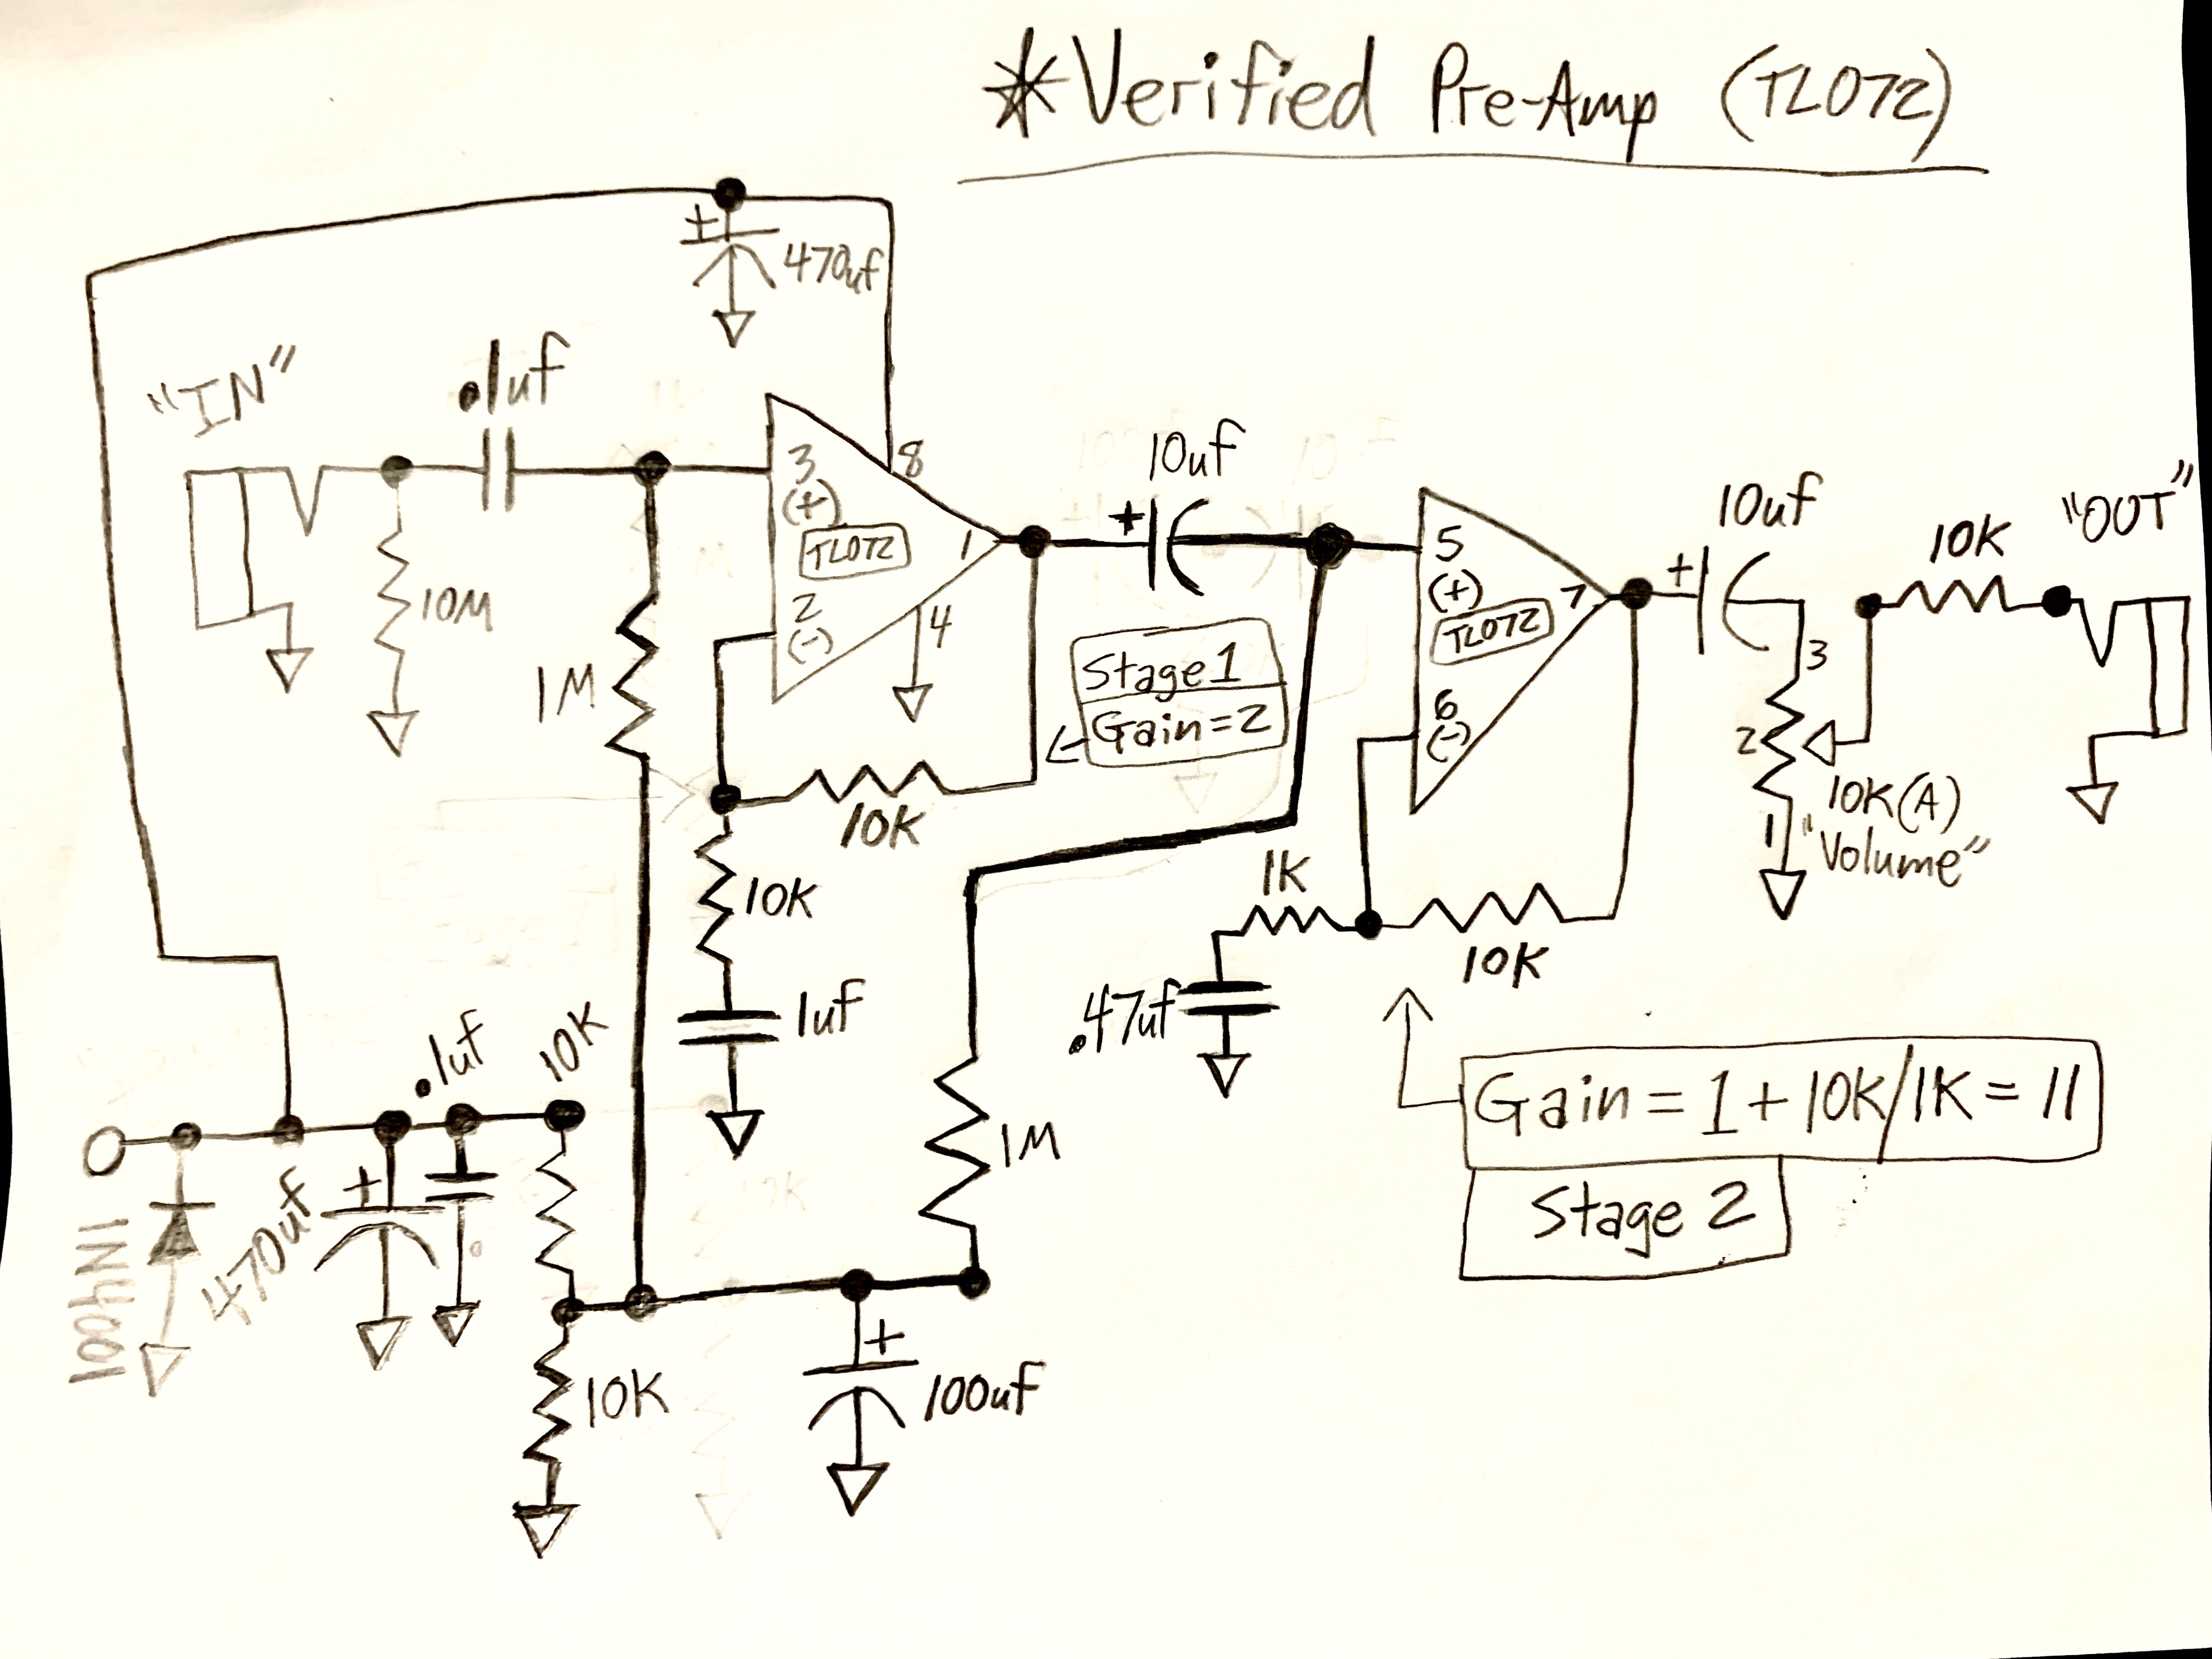 *Verified Pre-Amp (TL072)
±
470uf
"IN"
.1uf
10M
1M
3
(+)
8
TL072
1
2
(-)
4
10K
10K
1uf
10uf
+
Stage 1
Gain=2
5
(+)
TL072
7
6
(-)
1K
10K
.47uf
10uf
+
3
2
1
10K(A)
"Volume"
10K
"OUT"
Gain = 1 + 10K/1K = 11
Stage 2
1M
.1uf
10K
1N4001
470uf
±
10K
+
100uf